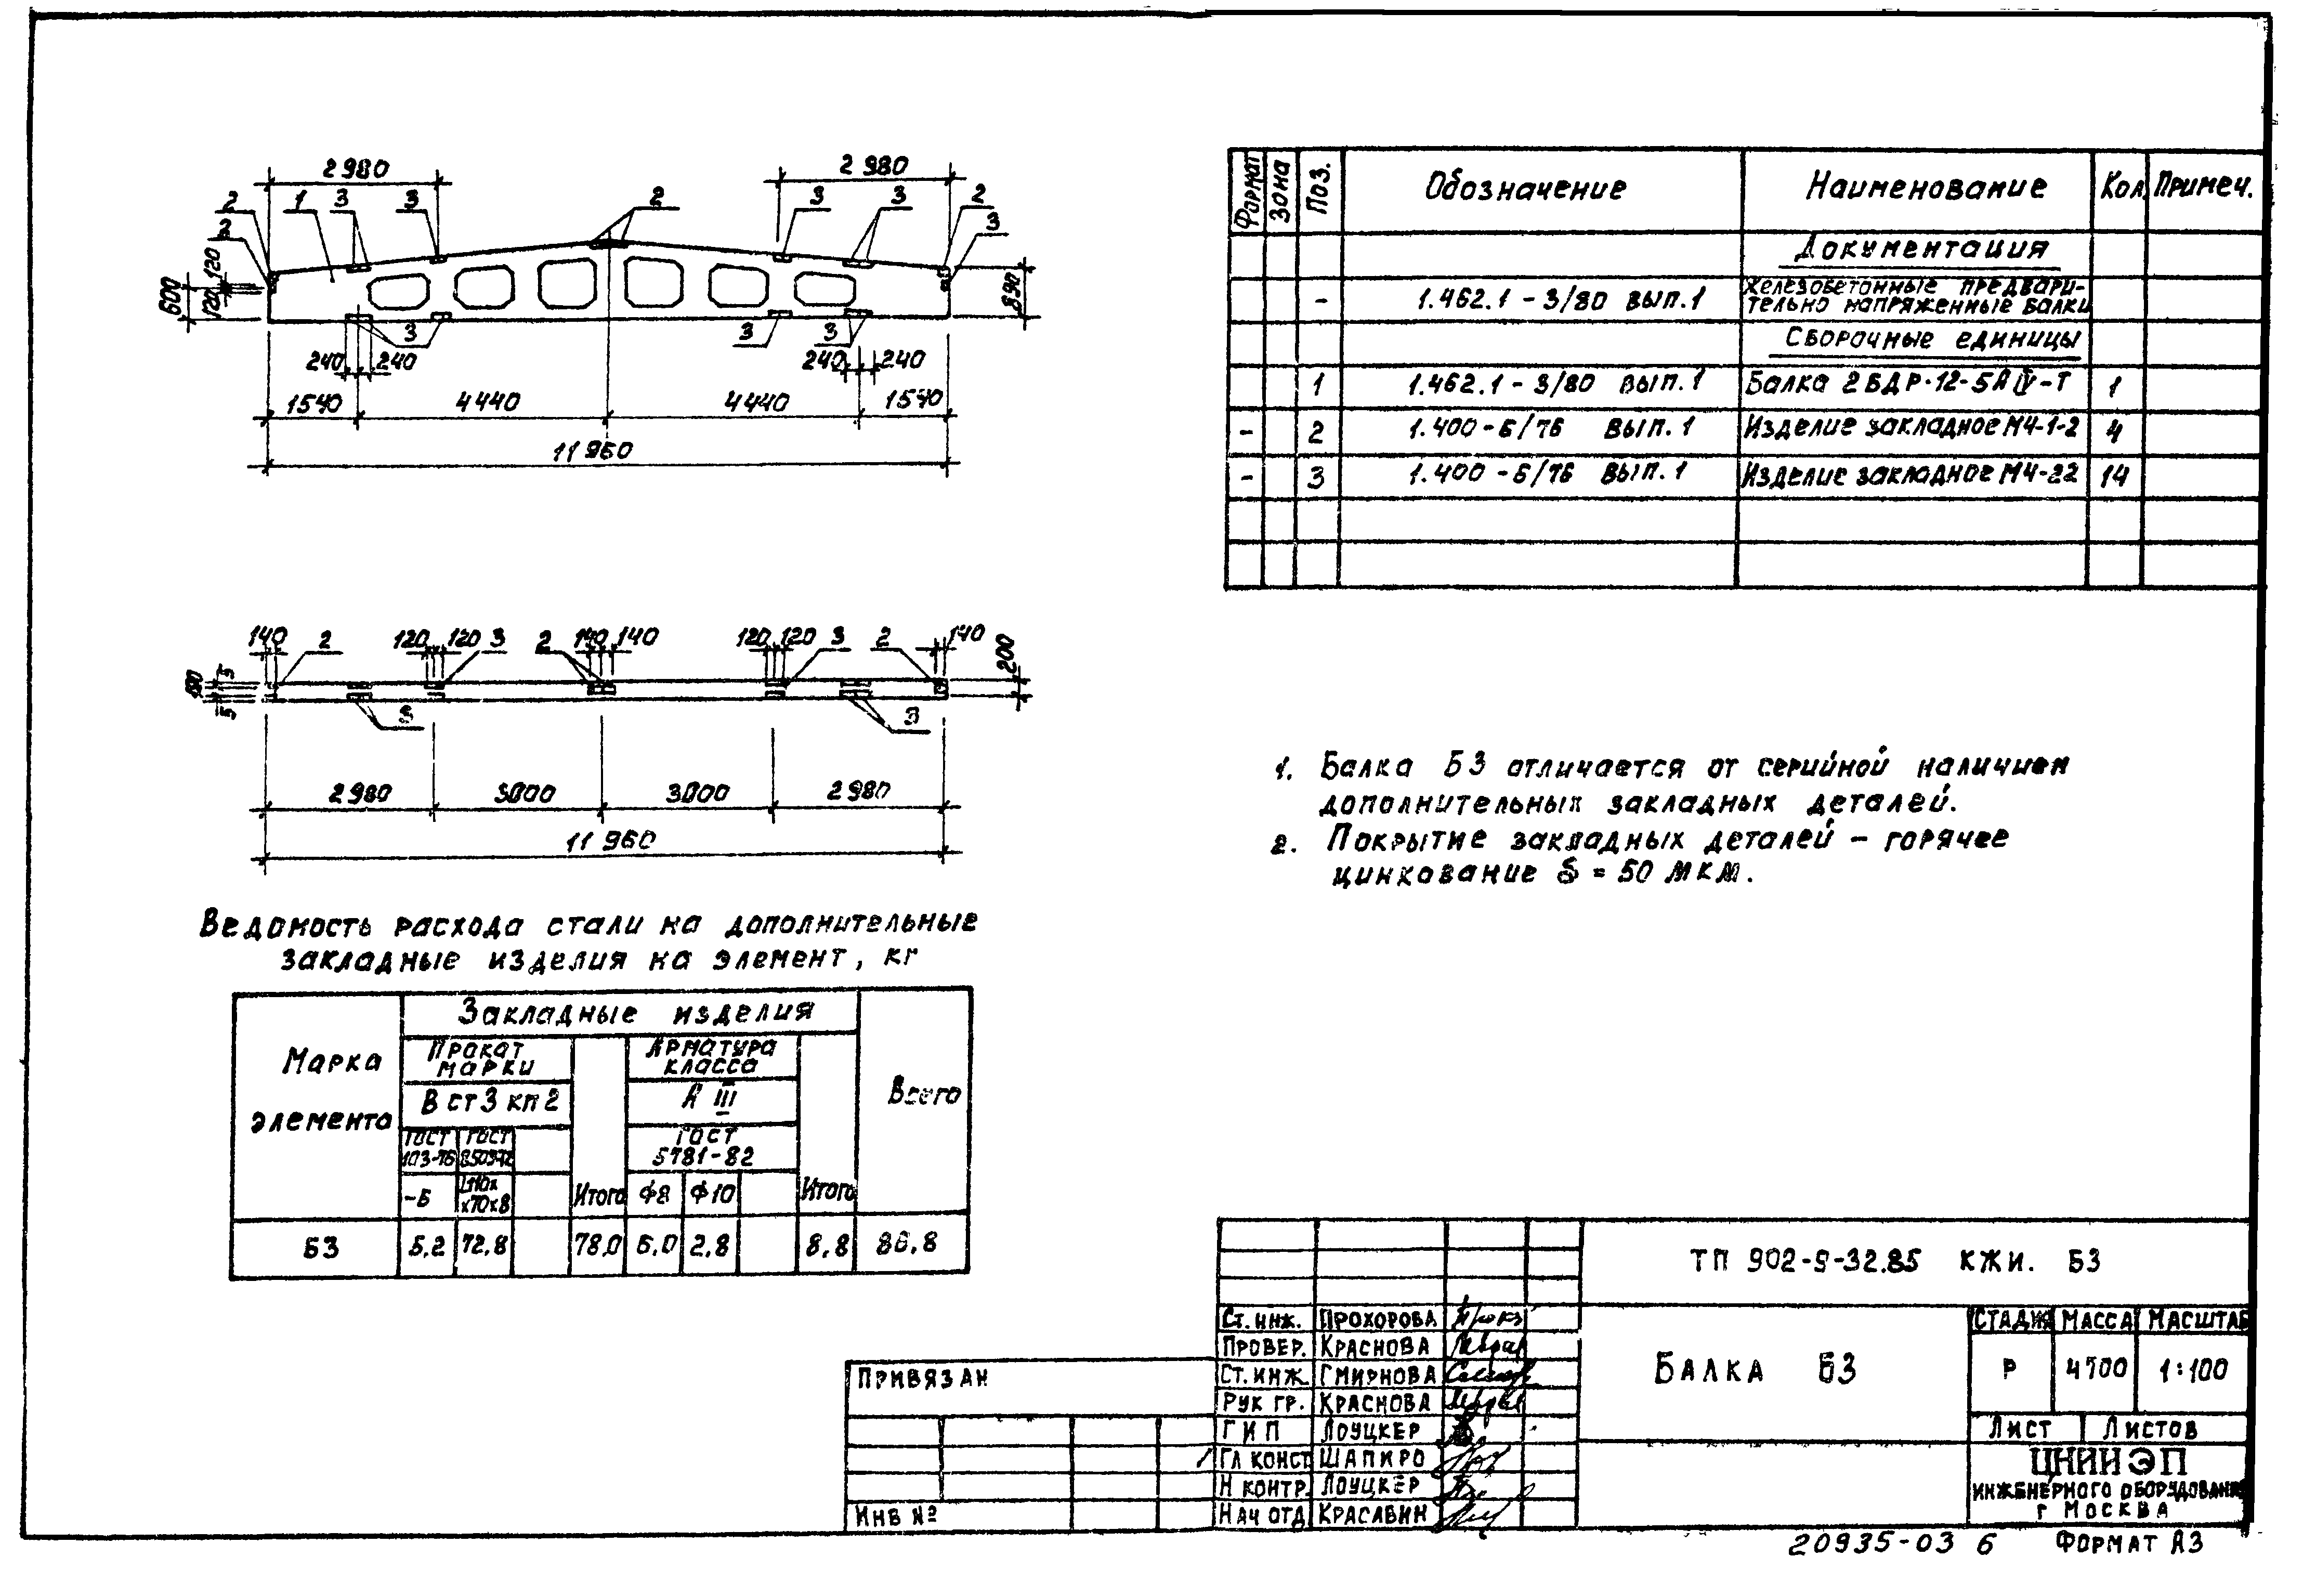 2980
2980
2 1 3 3 2 3 3 2
3 3
600 120 120 890
3 3 3
240 240 240 240
1540 4440 4440 1540
11960
Формат Зона Поз. Обозначение Наименование Кол. Примеч.
Документация
- 1.462.1-3/80 вып.1 Железобетонные предвари-
тельно напряженные балки
Сборочные единицы
1 1.462.1-3/80 вып.1 Балка 2БДР-12-5АIV-Т 1
- 2 1.400-6/76 вып.1 Изделие закладное М4-1-2 4
- 3 1.400-6/76 вып.1 Изделие закладное М4-22 14
140 2 120 120 3 2 140 140 120 120 3 2 140
5 5 200
3 3
2980 3000 3000 2980
11960
1. Балка Б3 отличается от серийной наличием
дополнительных закладных деталей.
2. Покрытие закладных деталей – горячее
цинкование δ = 50 мкм.
Ведомость расхода стали на дополнительные
закладные изделия на элемент, кг
Марка элемента
Закладные изделия
Всего
Прокат марки
Арматура класса
В ст 3 кп 2
А III
ГОСТ 103-76
ГОСТ 8509-72
ГОСТ 5781-82
-6 L110х х70х8 Итого ф8 ф10 Итого
Б3 5,2 72,8 78,0 6,0 2,8 8,8 86,8
ТП 902-9-32.85 КЖИ. Б3
Ст. инж. Прохорова
Провер. Краснова
Ст. инж. Смирнова
Рук гр. Краснова
ГИП Лоуцкер
Гл конст Шапиро
Н контр. Лоуцкер
Нач отд Красавин
Балка Б3
Стадия Масса Масштаб
Р 4700 1:100
Лист Листов
ЦНИИЭП
инженерного оборудования
г Москва
Привязан
Инв №
20935-03 6 Формат А3